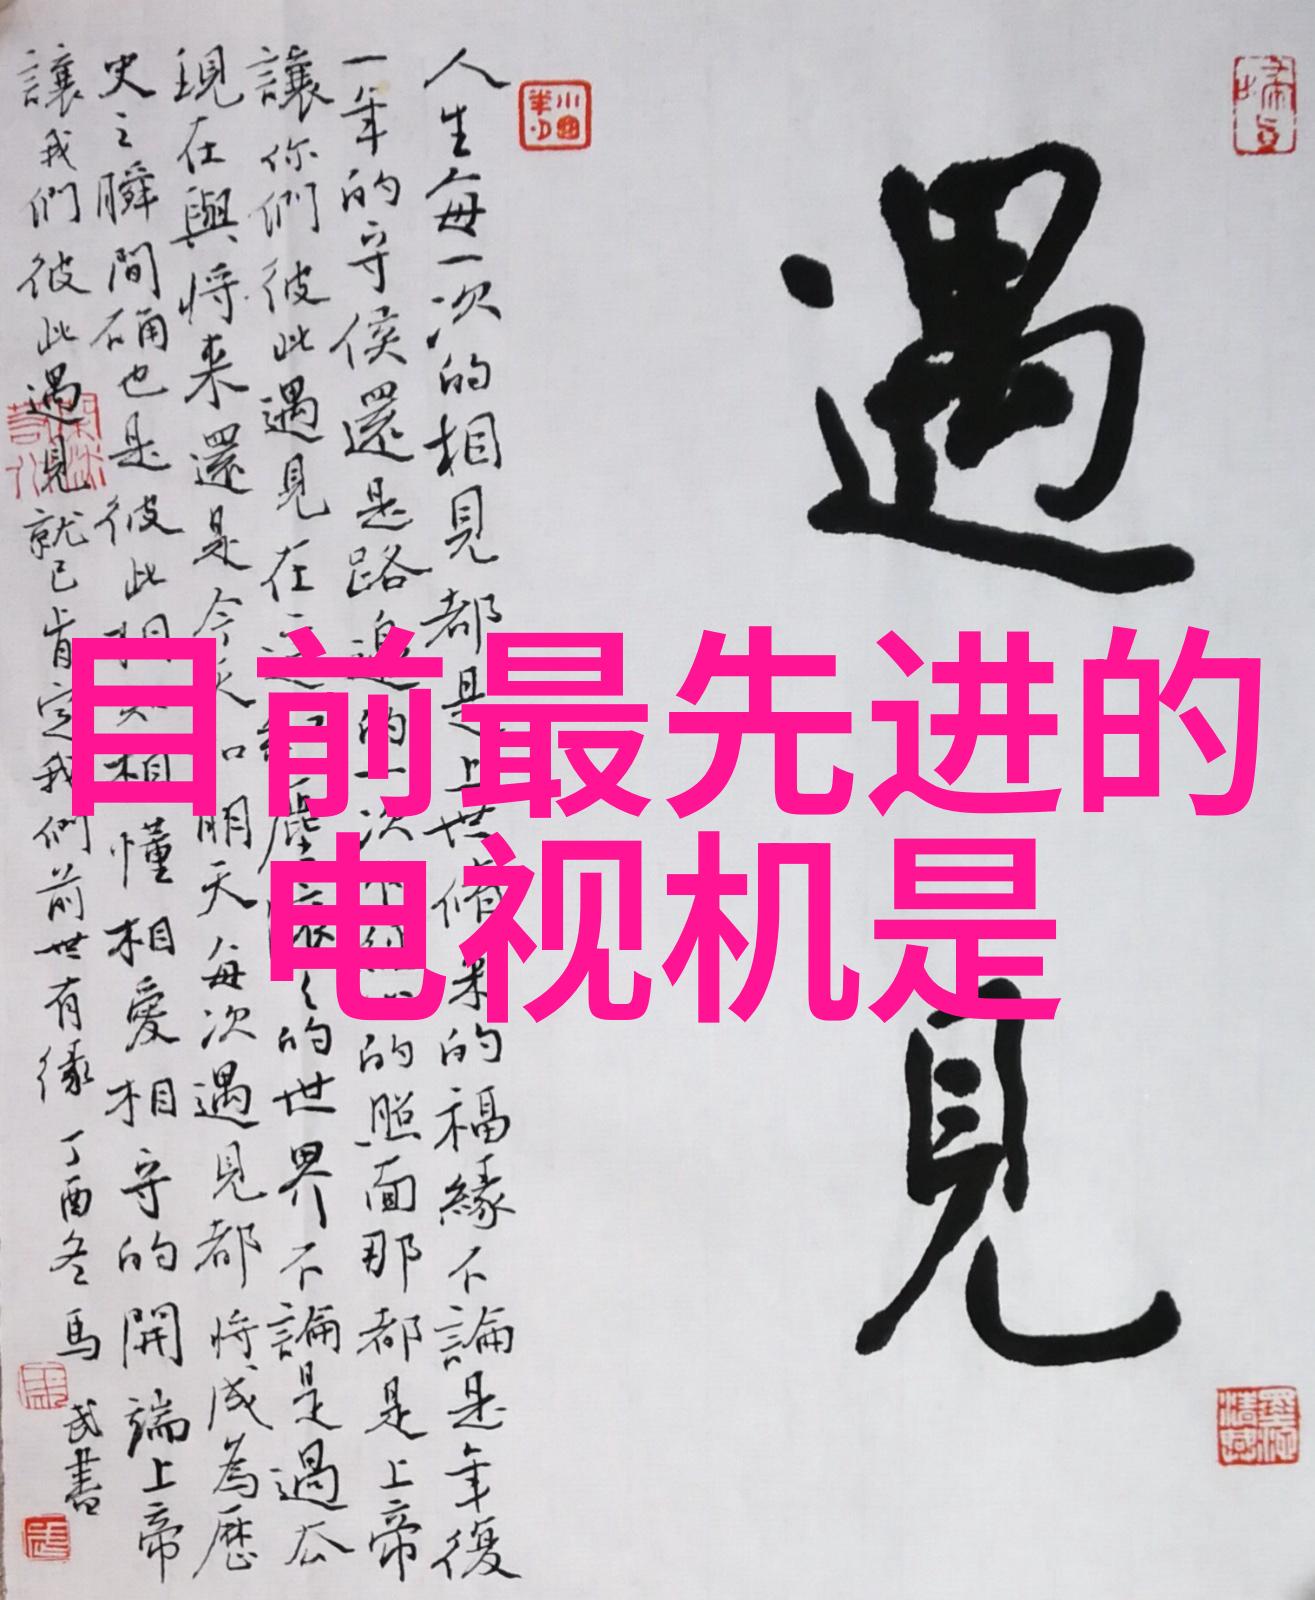 目前最先进的
电视机是
遇見
人生每一次的相見都是上世修来的福緣不論是年復
一年的守侯還是路邊的一次不經的照面那都是上帝
讓你們彼此遇見在這紅塵的世界不論是過去
現在與将来還是今天和明天每次遇見都将成為歷
史之瞬間確也是彼此相知相懂相愛相守的開端上帝
讓我們彼此遇見就已肯定我們前世有缘丁酉冬馬
武書